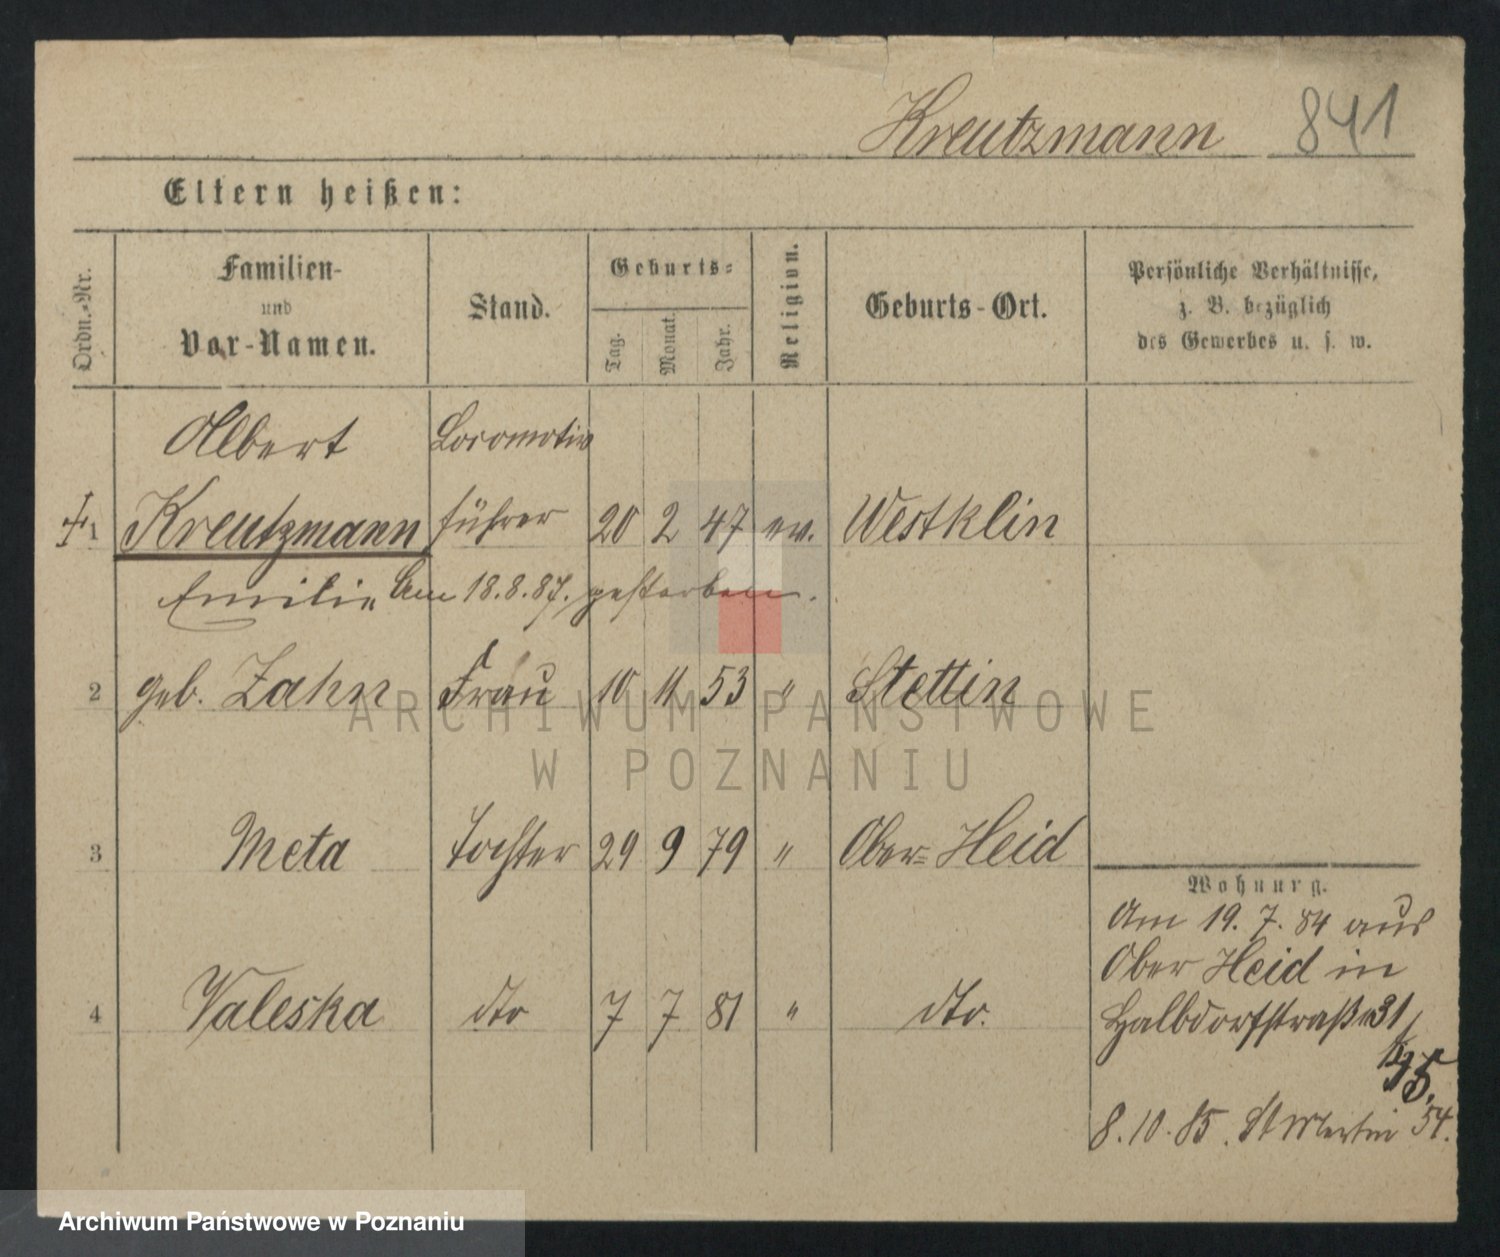 Kreutzmann 841
Eltern heißen:
Ordn.-Nr.
Familien-
und
Vor-Namen.
Stand.
Geburts-
Tag.
Monat.
Jahr.
Religion.
Geburts-Ort.
Persönliche Verhältnisse,
z. B. bezüglich
des Gewerbes u. s. w.
Albert Locomotiv
1 Kreutzmann führer 20 2 47 ev. Westklin
Emilie Am 18.8.87. gestorben.
2 geb. Zahn Frau 10 11 53 " Stettin
3 Meta Tochter 29 9 79 " Ober-Heid
4 Valeska dto 7 7 81 " dto.
Wohnung.
Am 19. 7. 84 aus
Ober Heid in
Halbdorfstraße 31/
35.
8. 10. 85. St Martin 54.
ARCHIWUM PAŃSTWOWE
W POZNANIU
Archiwum Państwowe w Poznaniu